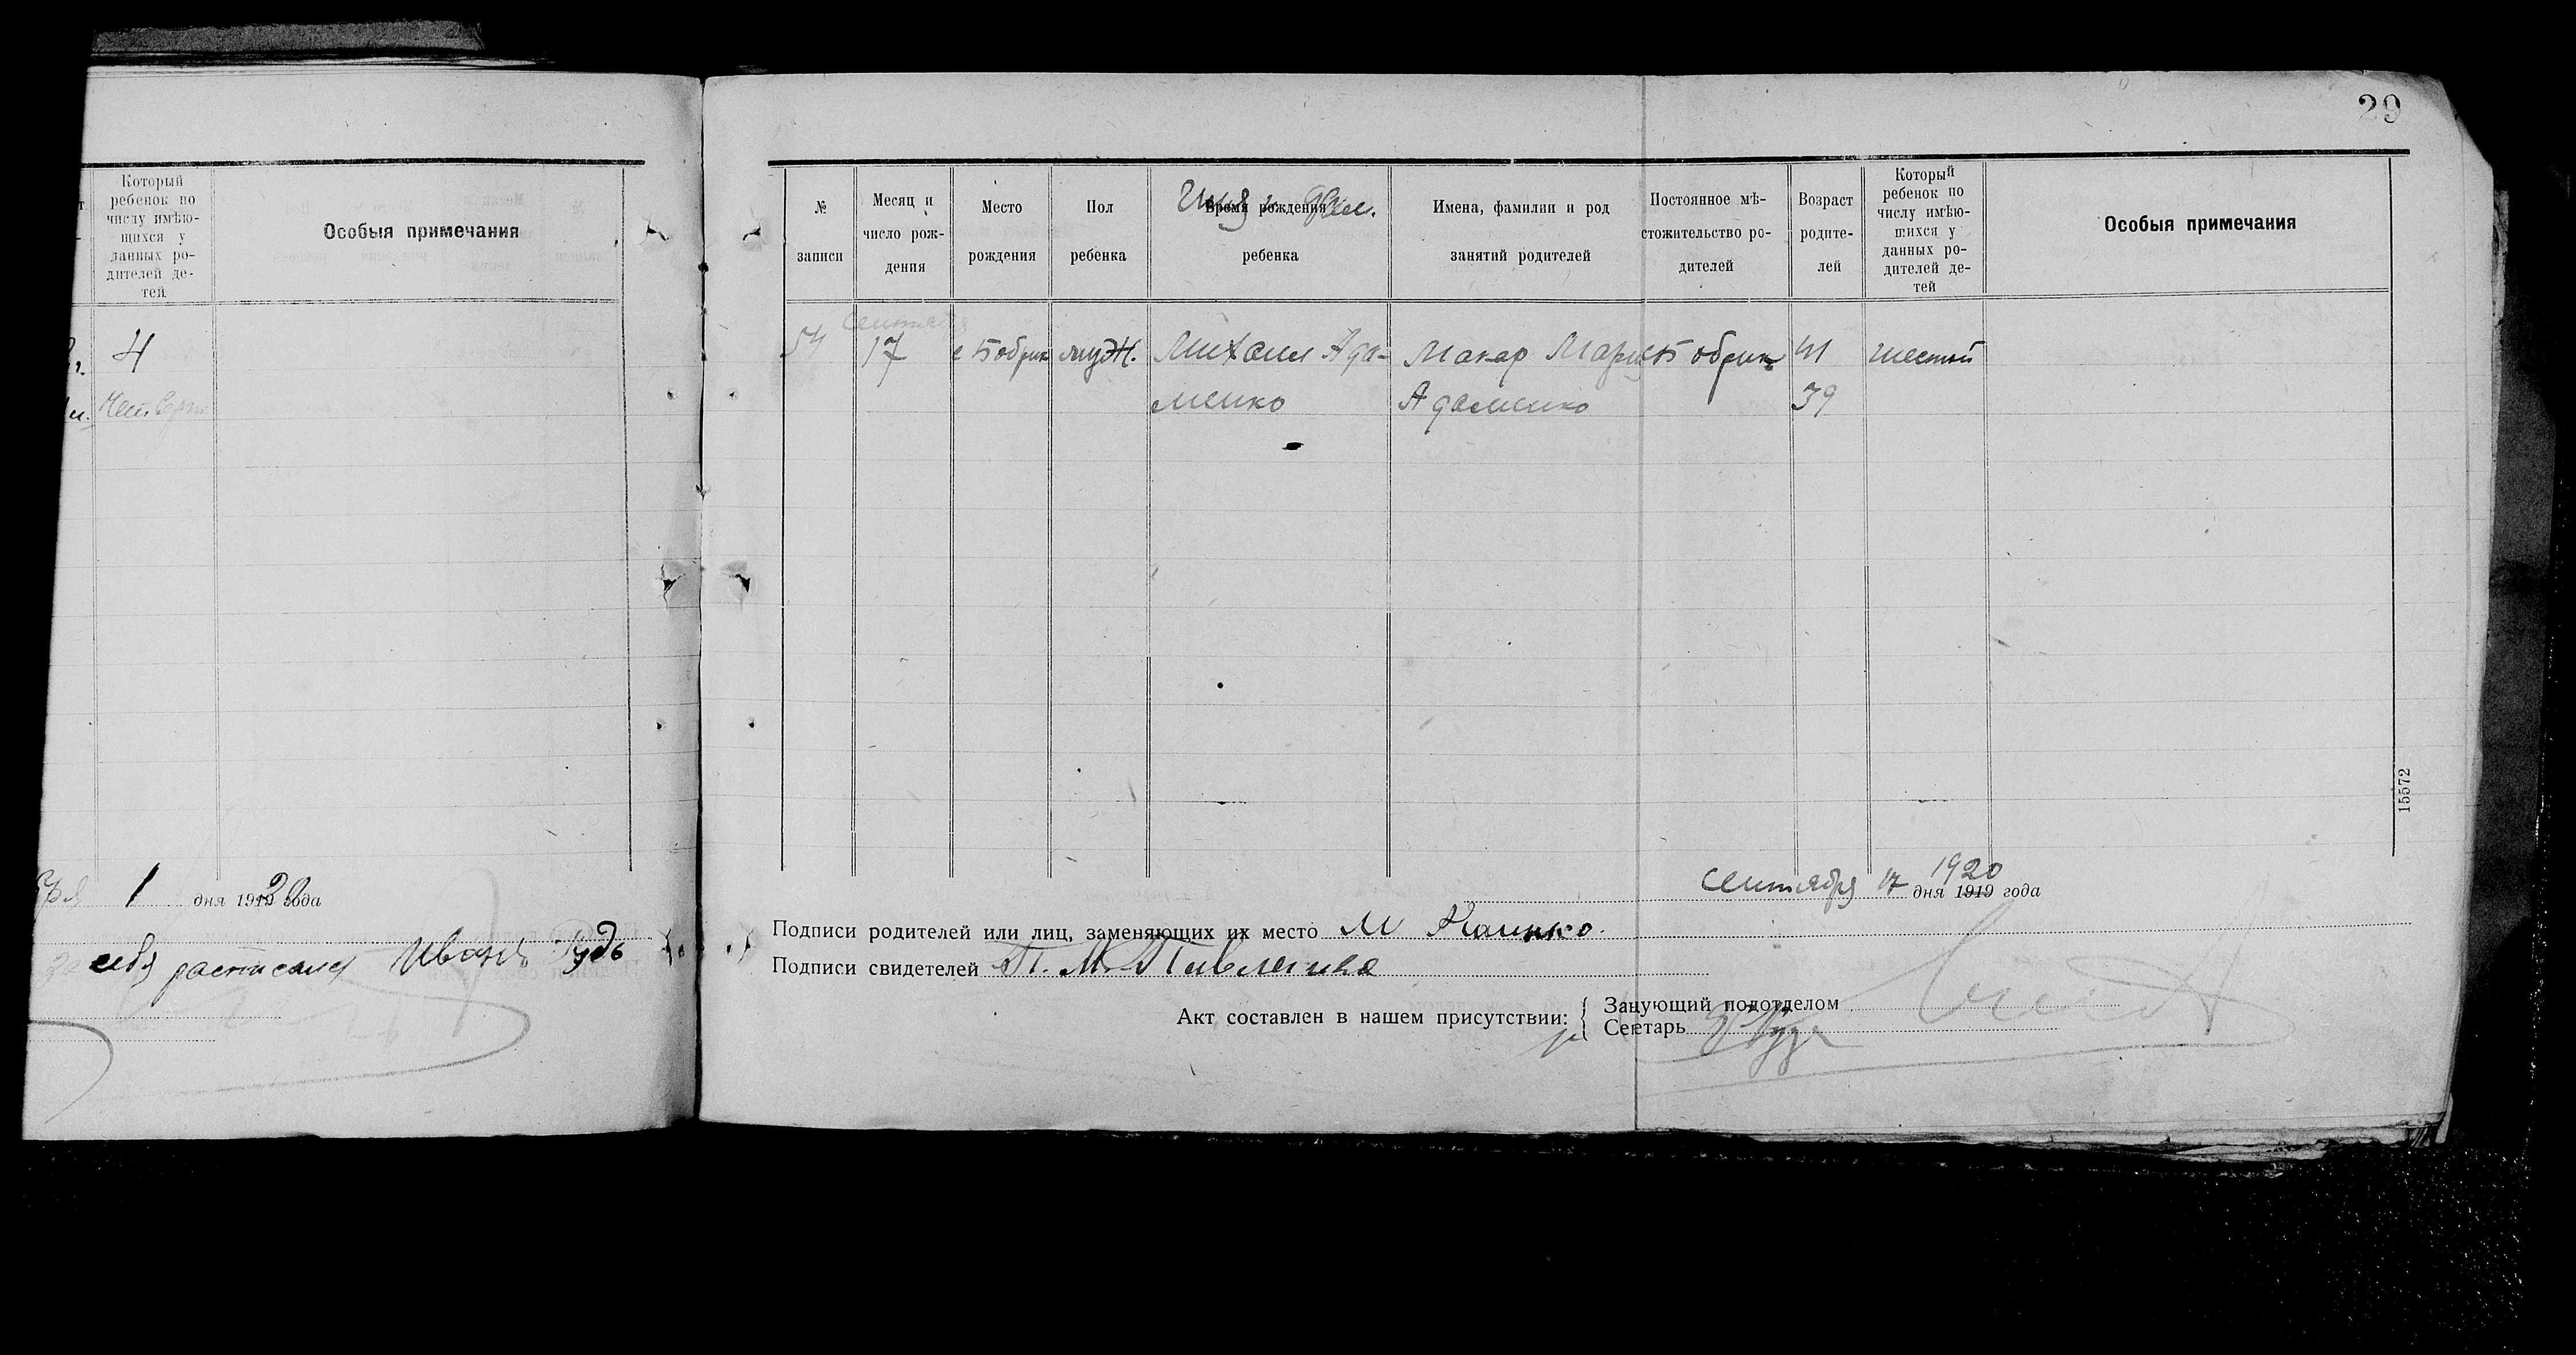 29
Который
ребенок по
числу имѣю-
щихся у
данных ро-
дителей де-
тей
Особыя примечания
4
Четверт
1 дня 1920 года
себя расписался Иванъ Рудь
№
записи
Месяц и
число рож-
дения
Место
рождения
Пол
ребенка
Имя и фам.
Время рождения
ребенка
Имена, фамилии и род
занятий родителей
Постоянное мѣ-
стожительство ро-
дителей
Возраст
родите-
лей
Который
ребенок по
числу имѣю-
щихся у
данных ро-
дителей де-
тей
Особыя примечания
сентября
54 17 с Бобрик муж. Михаил Ада- Макар Мария Бобрик 41 шестой
менко Адаменко 39
15572
1920
сентября 17 дня 1919 года
Подписи родителей или лиц, заменяющих их место М
Подписи свидетелей П. М.
Акт составлен в нашем присутствии:
Занующий подотделом
Секетарь